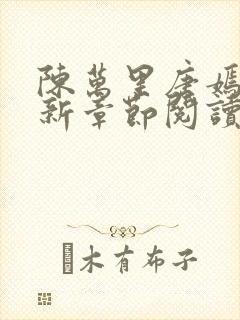 陳萬里唐嫣
新章節閱讀
木有布子